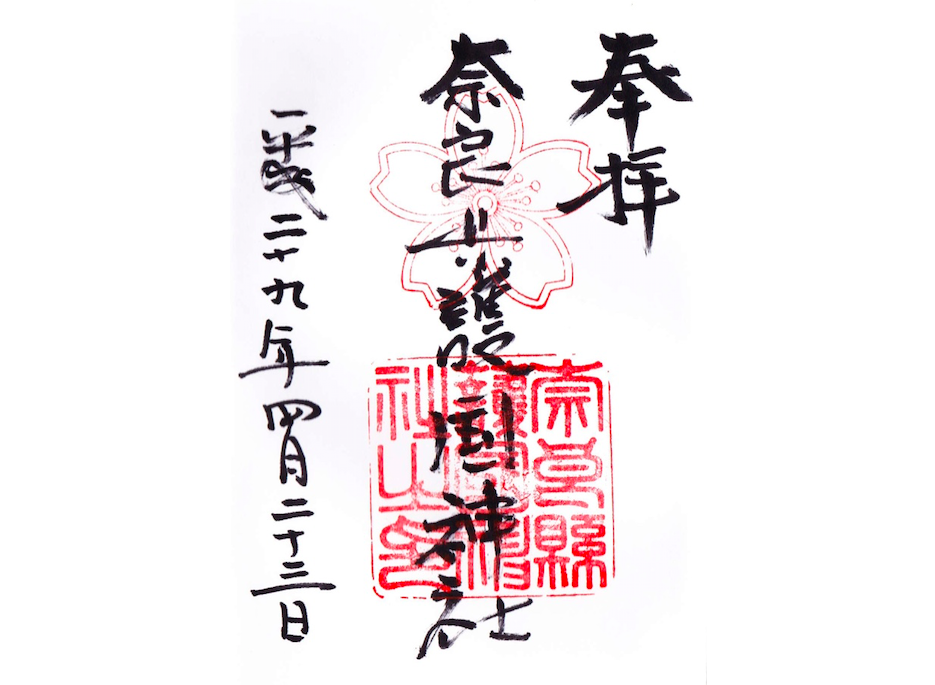 奉拝
奈良県護國神社
平成二十九年四月二十三日
奈良縣
護國神
社之印